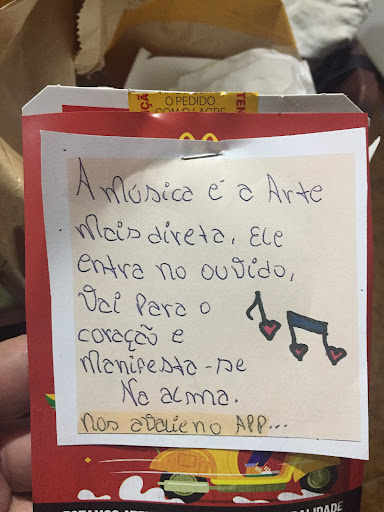 O PEDIDO
A Música é a Arte
Mais direta, Ele
entra no ouvido,
Vai Para o
coração e
Manifesta-se
Na alma.
Nos avalie no APP...